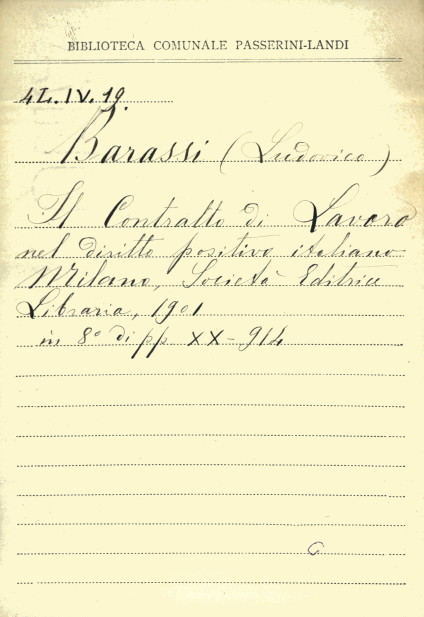 BIBLIOTECA COMUNALE PASSERINI-LANDI
4L.IV.19.
Barassi (Ludovico)
Il Contratto di Lavoro
nel diritto positivo italiano
Milano, Società Editrice
Libraria, 1901
in 8° di pp XX-914